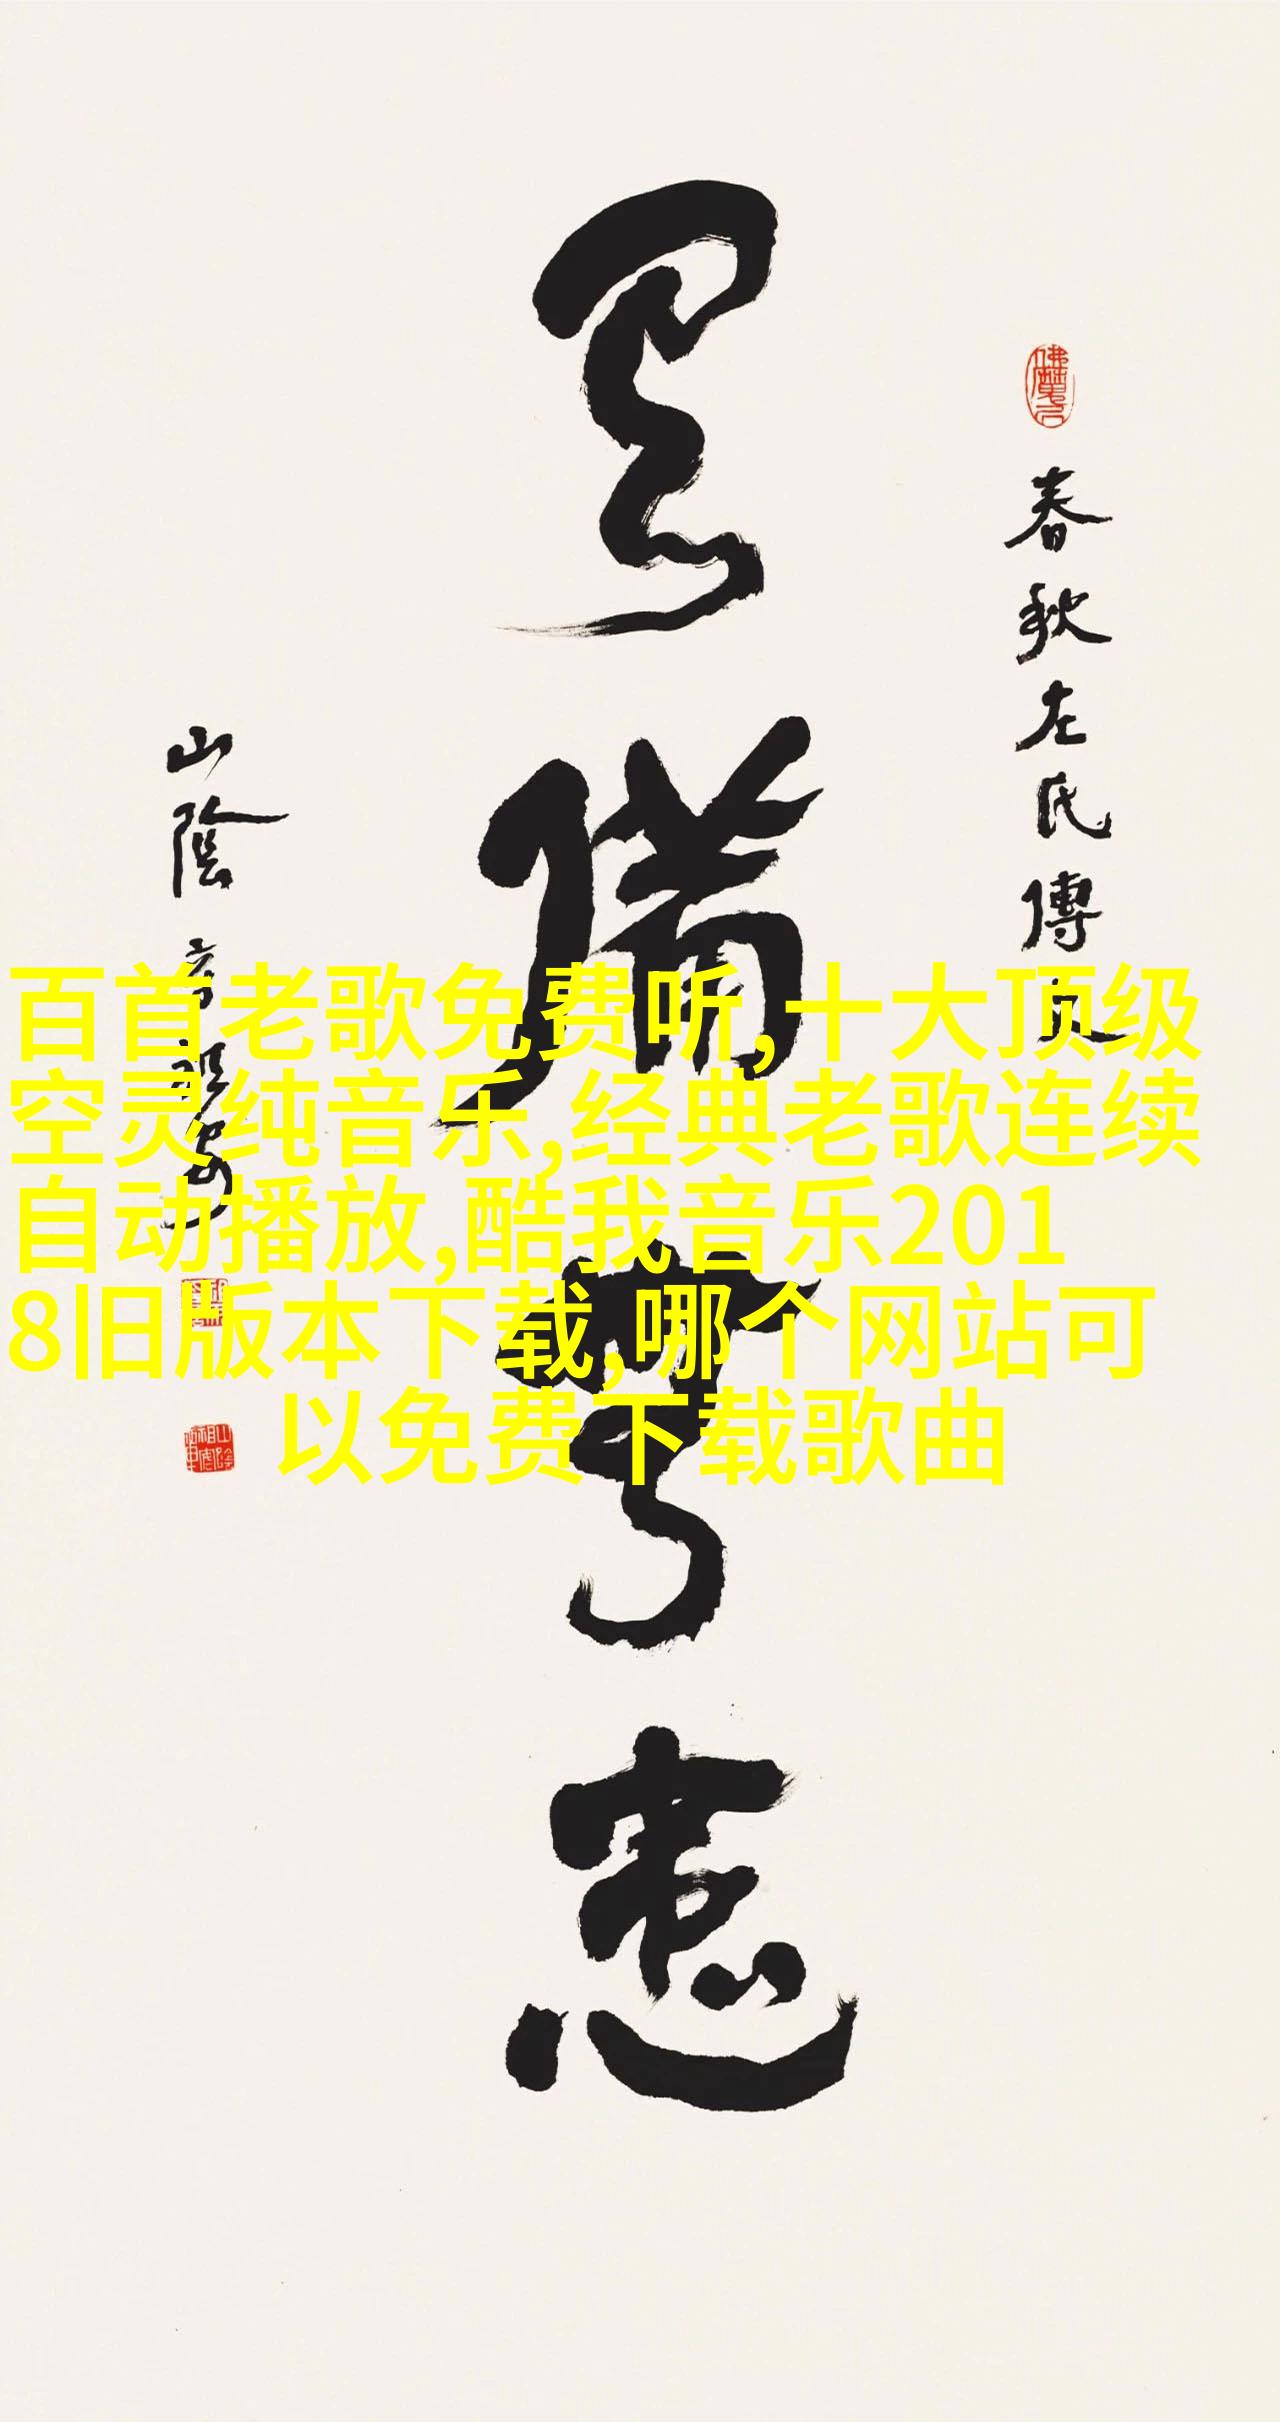 春秋左氏傳句
有備無患
山陰
百首老歌免费听,十大顶级
空灵纯音乐,经典老歌连续
自动播放,酷我音乐201
8旧版本下载,哪个网站可
以免费下载歌曲